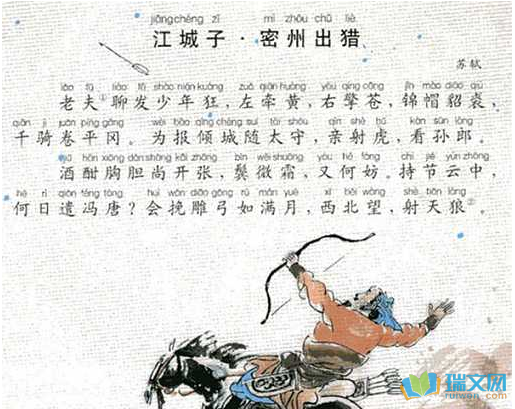 jiāng chéng zǐ mì zhōu chū liè
江城子·密州出猎
苏轼
lǎo fū liáo fā shào nián kuáng zuǒ qiān huáng yòu qíng cāng jǐn mào diāo qiú
老夫聊发少年狂，左牵黄，右擎苍，锦帽貂裘，
qiān jì juǎn píng gāng wèi bào qīng chéng suí tài shǒu qīn shè hǔ kàn sūn láng
千骑卷平冈。为报倾城随太守，亲射虎，看孙郎。
jiǔ hān xiōng dǎn shàng kāi zhāng bìn wēi shuāng yòu hé fáng chí jié yún zhōng
酒酣胸胆尚开张，鬓微霜，又何妨。持节云中，
hé rì qiǎn féng táng huì wǎn diāo gōng rú mǎn yuè xī běi wàng shè tiān láng
何日遣冯唐？会挽雕弓如满月，西北望，射天狼。
瑞文网
ruiwen.com